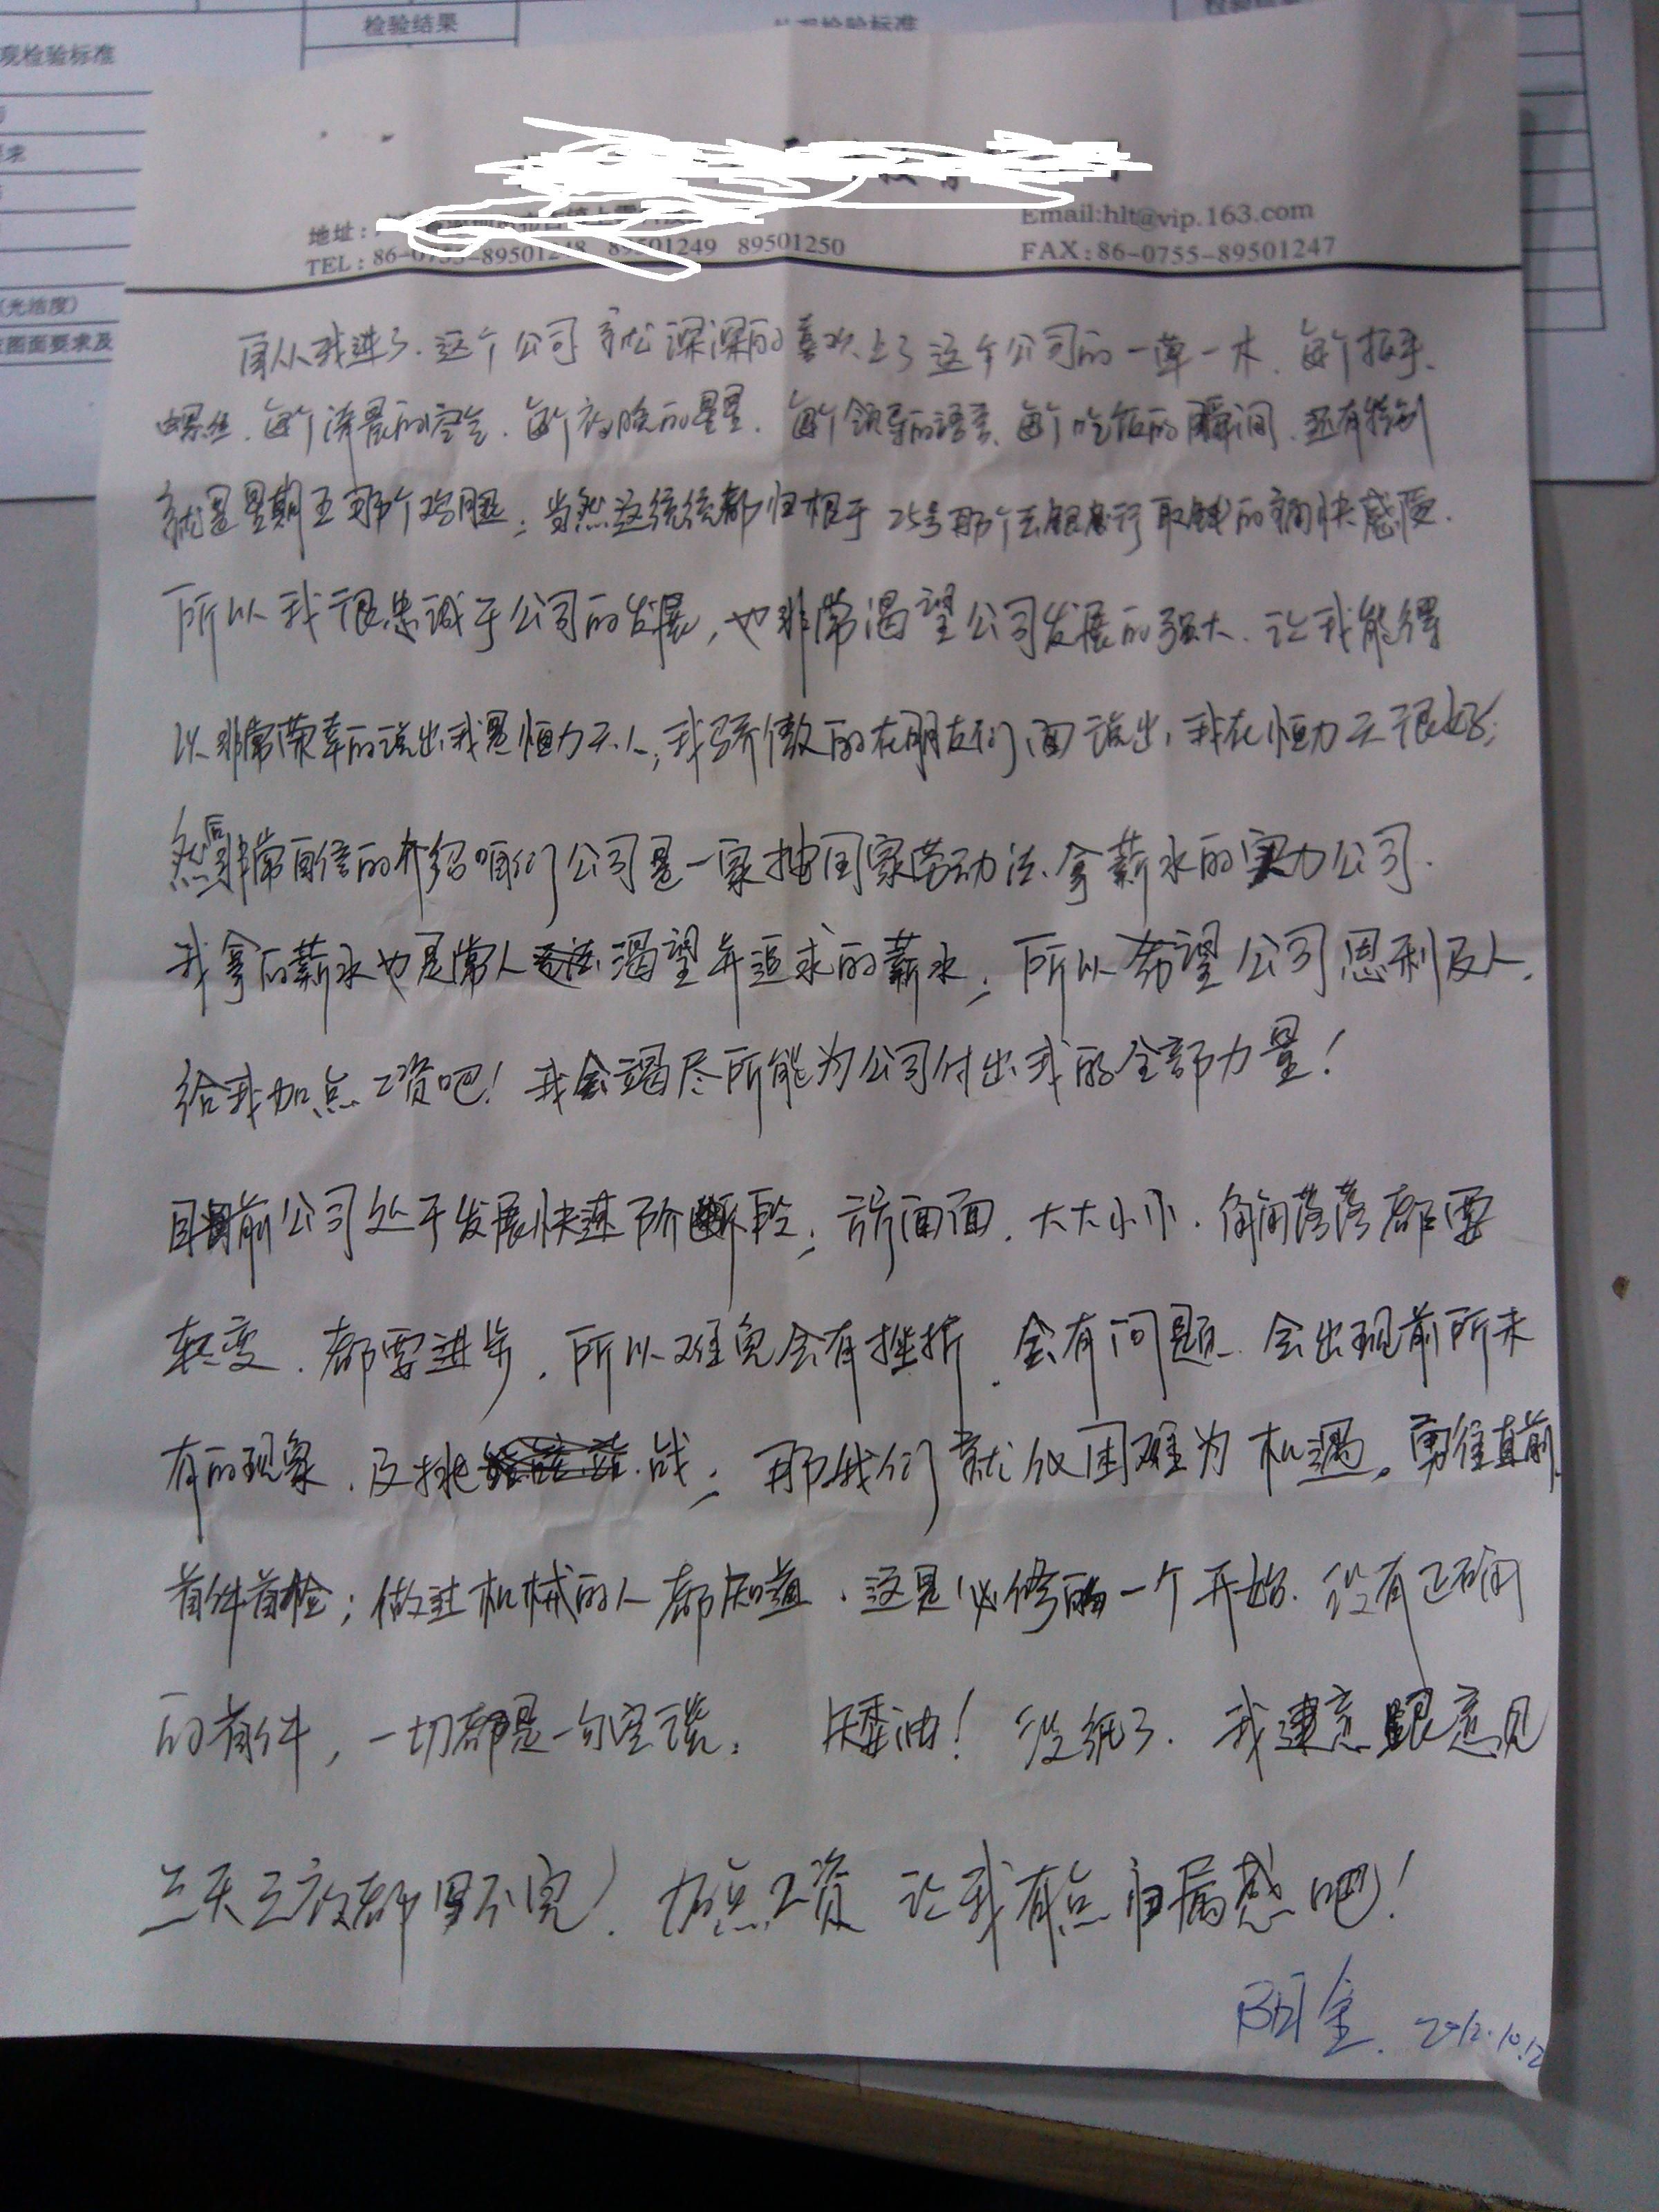 检验结果
观检验标准
检验标准
(光洁度)
图面要求及
地址:
Email:hlt@vip.163.com
TEL:86-0755-89501248 89501249 89501250
FAX:86-0755-89501247
自从我进了.这个公司就深深的喜欢上了这个公司的一草一木.每个扳手.
螺丝.每个清晨的空气.每个夜晚的星星.每个领导的语言.每个吃饭的瞬间.还有特别
就是星期五那个鸡腿;当然这统统都归根于25号那个去银行取钱的痛快感受.
所以我很忠诚于公司的发展,也非常渴望公司发展的强大.让我能得
以非常荣幸的说出我是恒力天人;我骄傲的在朋友们面说出,我在恒力天很好;
然后非常自信的介绍咱们公司是一家按国家劳动法.拿薪水的实力公司.
我拿的薪水也是常人渴望并追求的薪水;所以希望公司恩利及人.
给我加点工资吧!我会竭尽所能为公司付出我的全部力量!
目前公司处于发展快速阶段;方方面面.大大小小.角角落落都要
转变.都要进步.所以难免会有挫折.会有问题.会出现前所未
有的现象.及挑战;那我们就仪困难为机遇,勇往直前.
首件首检;做过机械的人都知道.这是必修的一个开始.没有正确
的首件,一切都是一句空谈. 没纸了.我建意跟意见
三天三夜都写不完!加点工资 让我有点归属感吧!
2012.10.12